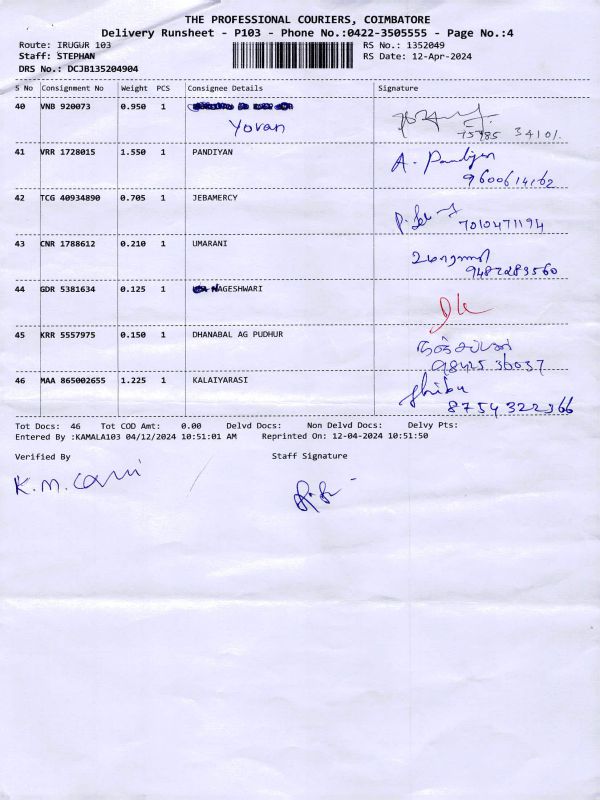 THE PROFESSIONAL COURIERS, COIMBATORE
Delivery Runsheet - P103 - Phone No.:0422-3505555 - Page No.:4
Route: IRUGUR 103
RS No.: 1352049
Staff: STEPHAN
RS Date: 12-Apr-2024
DRS No.: DCJB135204904
S No Consignment No Weight PCS Consignee Details Signature
40 VNB 920073 0.950 1
Yovan
41 VRR 1728015 1.550 1 PANDIYAN A. Pandiyan
9600614162
42 TCG 40934890 0.705 1 JEBAMERCY
7010471194
43 CNR 1788612 0.210 1 UMARANI உமாராணி
9487283560
44 GDR 5381634 0.125 1 NAGESHWARI
45 KRR 5557975 0.150 1 DHANABAL AG PUDHUR
98425 36037
46 MAA 865002655 1.225 1 KALAIYARASI
8754322266
Tot Docs: 46 Tot COD Amt: 0.00 Delvd Docs: Non Delvd Docs: Delvy Pts:
Entered By :KAMALA103 04/12/2024 10:51:01 AM Reprinted On: 12-04-2024 10:51:50
Verified By Staff Signature
K.M.